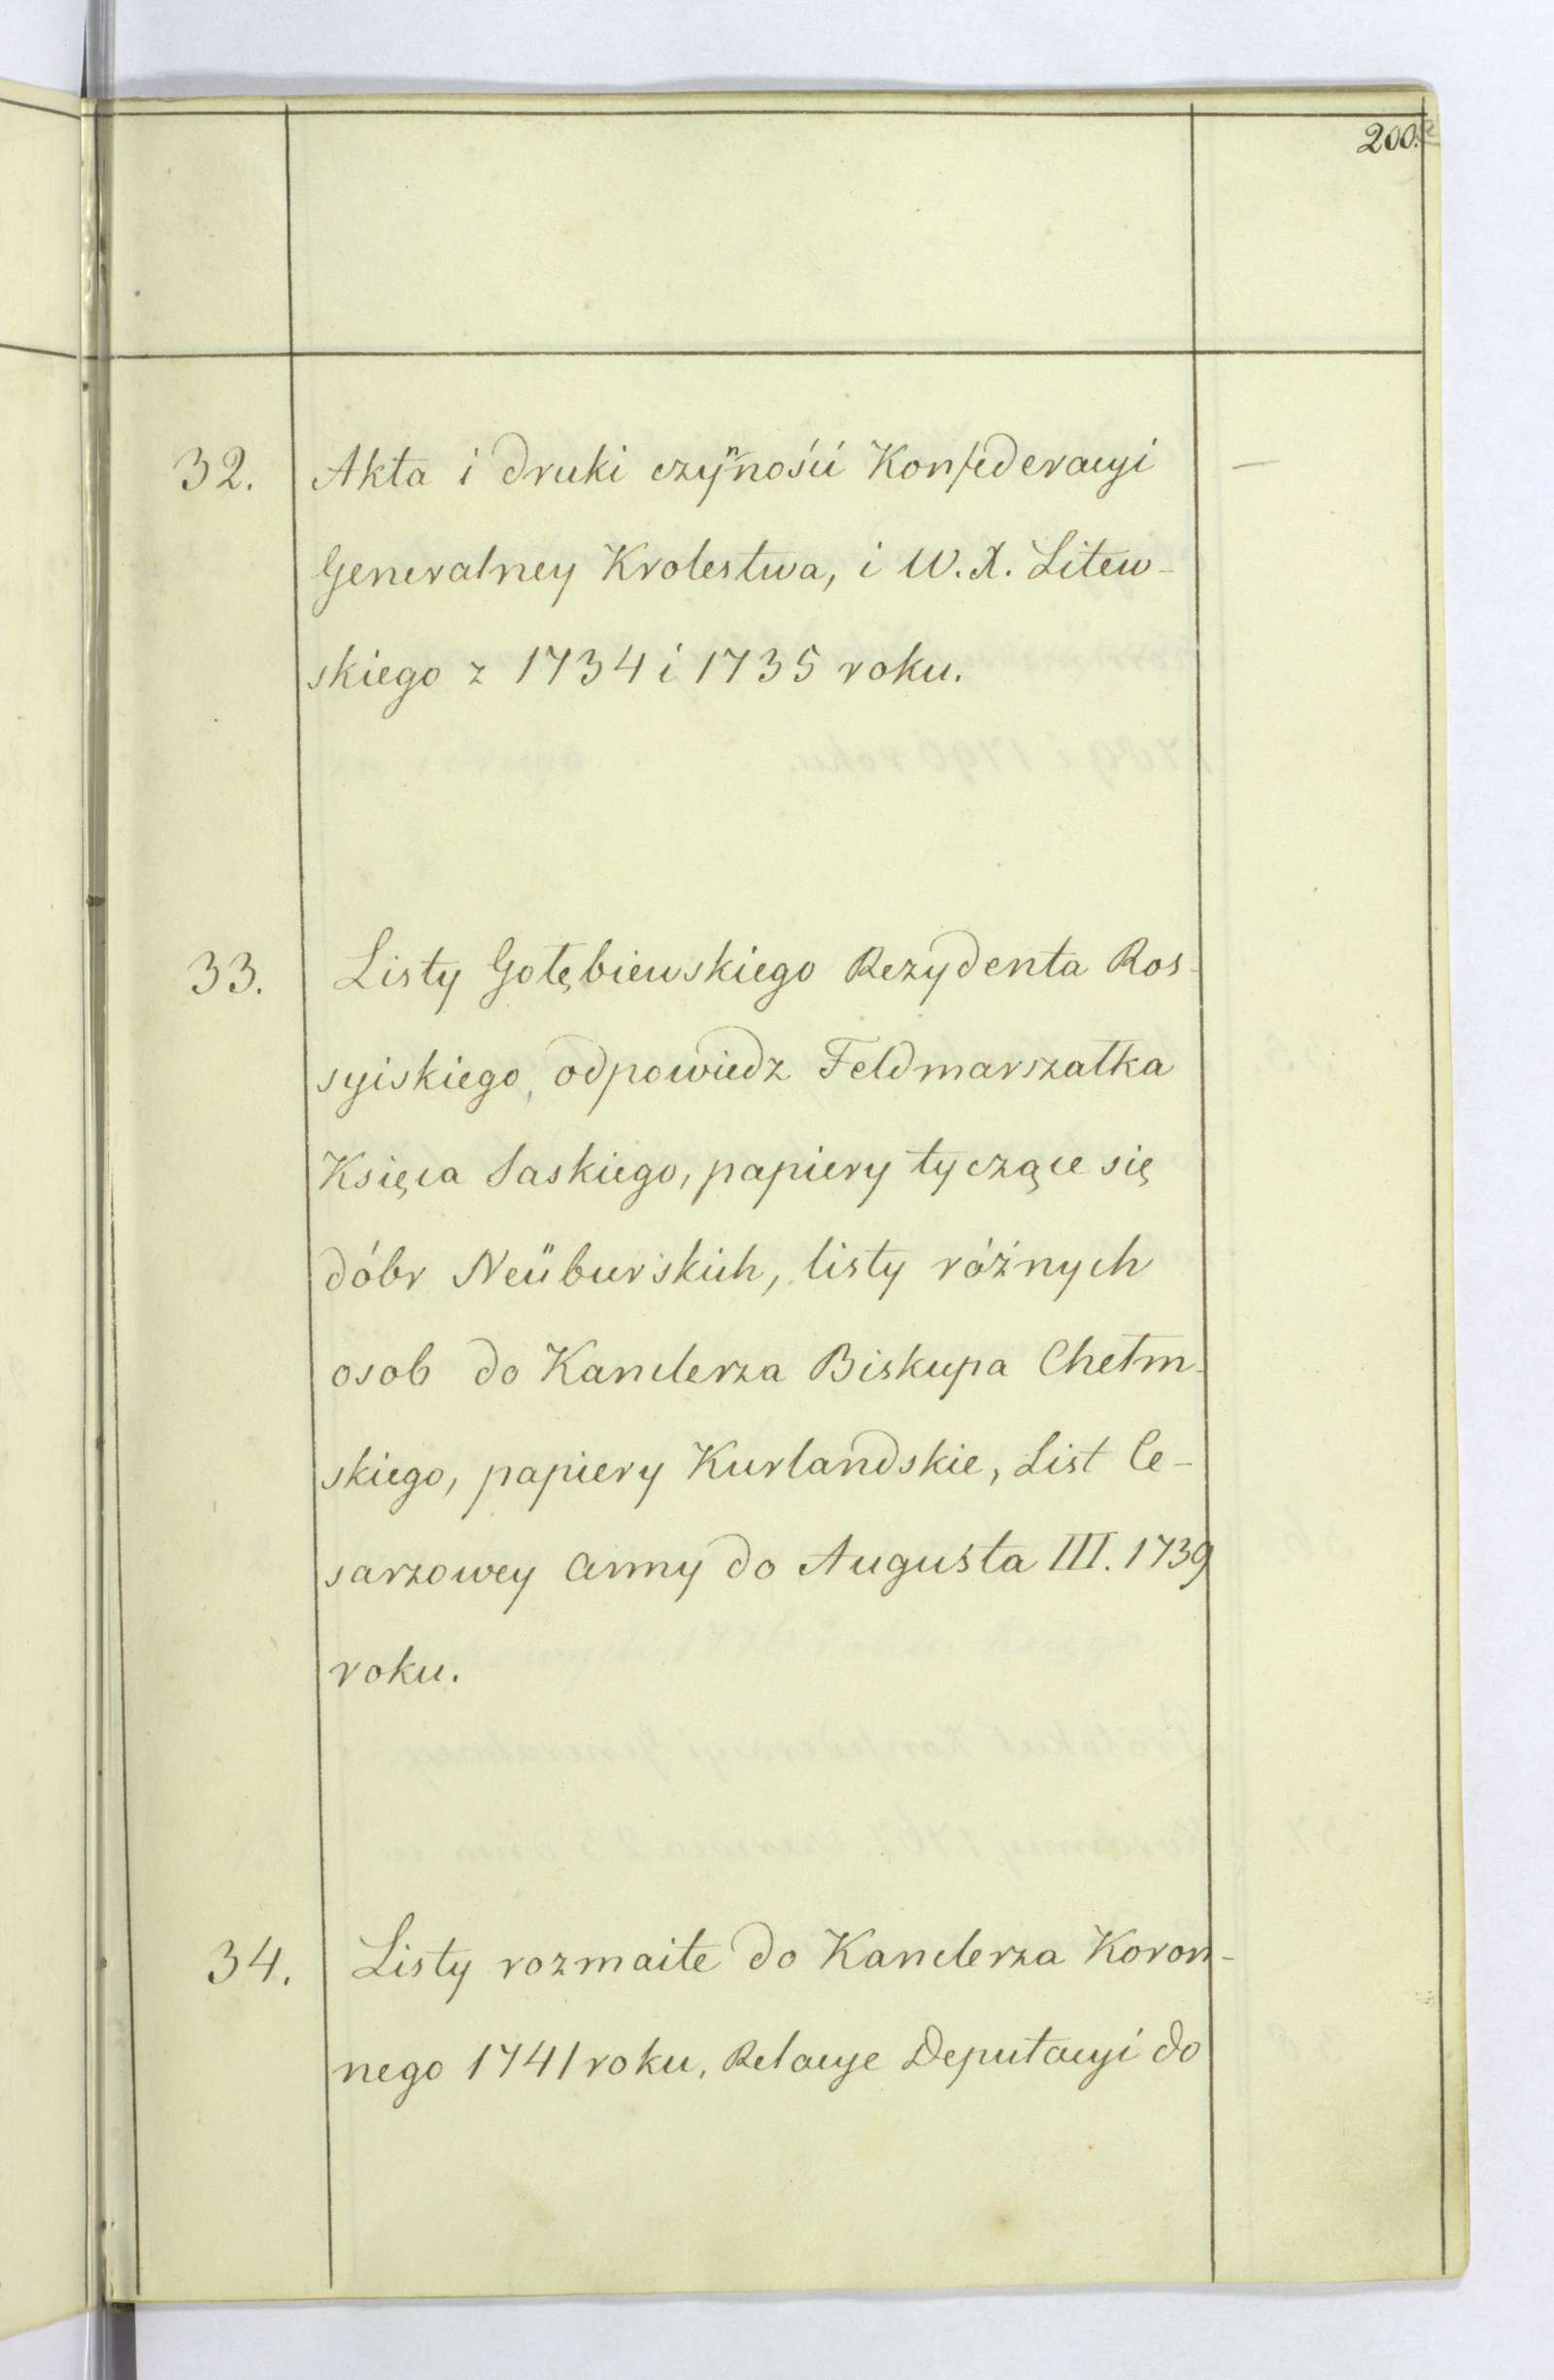 200.
32. Akta i druki czynności Konfederacyi —
Generalney Krolestwa, i W. X. Litew-
skiego z 1734 i 1735 roku.
33. Listy Gołębiewskiego Rezydenta Ros-
syiskiego, odpowiedz Feldmarszałka
Księcia Saskiego, papiery tyczące się
dóbr Neüburskich, listy różnych
osob do Kanclerza Biskupa Chełm-
skiego, papiery Kurlandskie, List Ce-
sarzowey Anny do Augusta III. 1739
roku.
34. Listy rozmaite do Kanclerza Koron-
nego 1741 roku, Relacye Deputacyi do